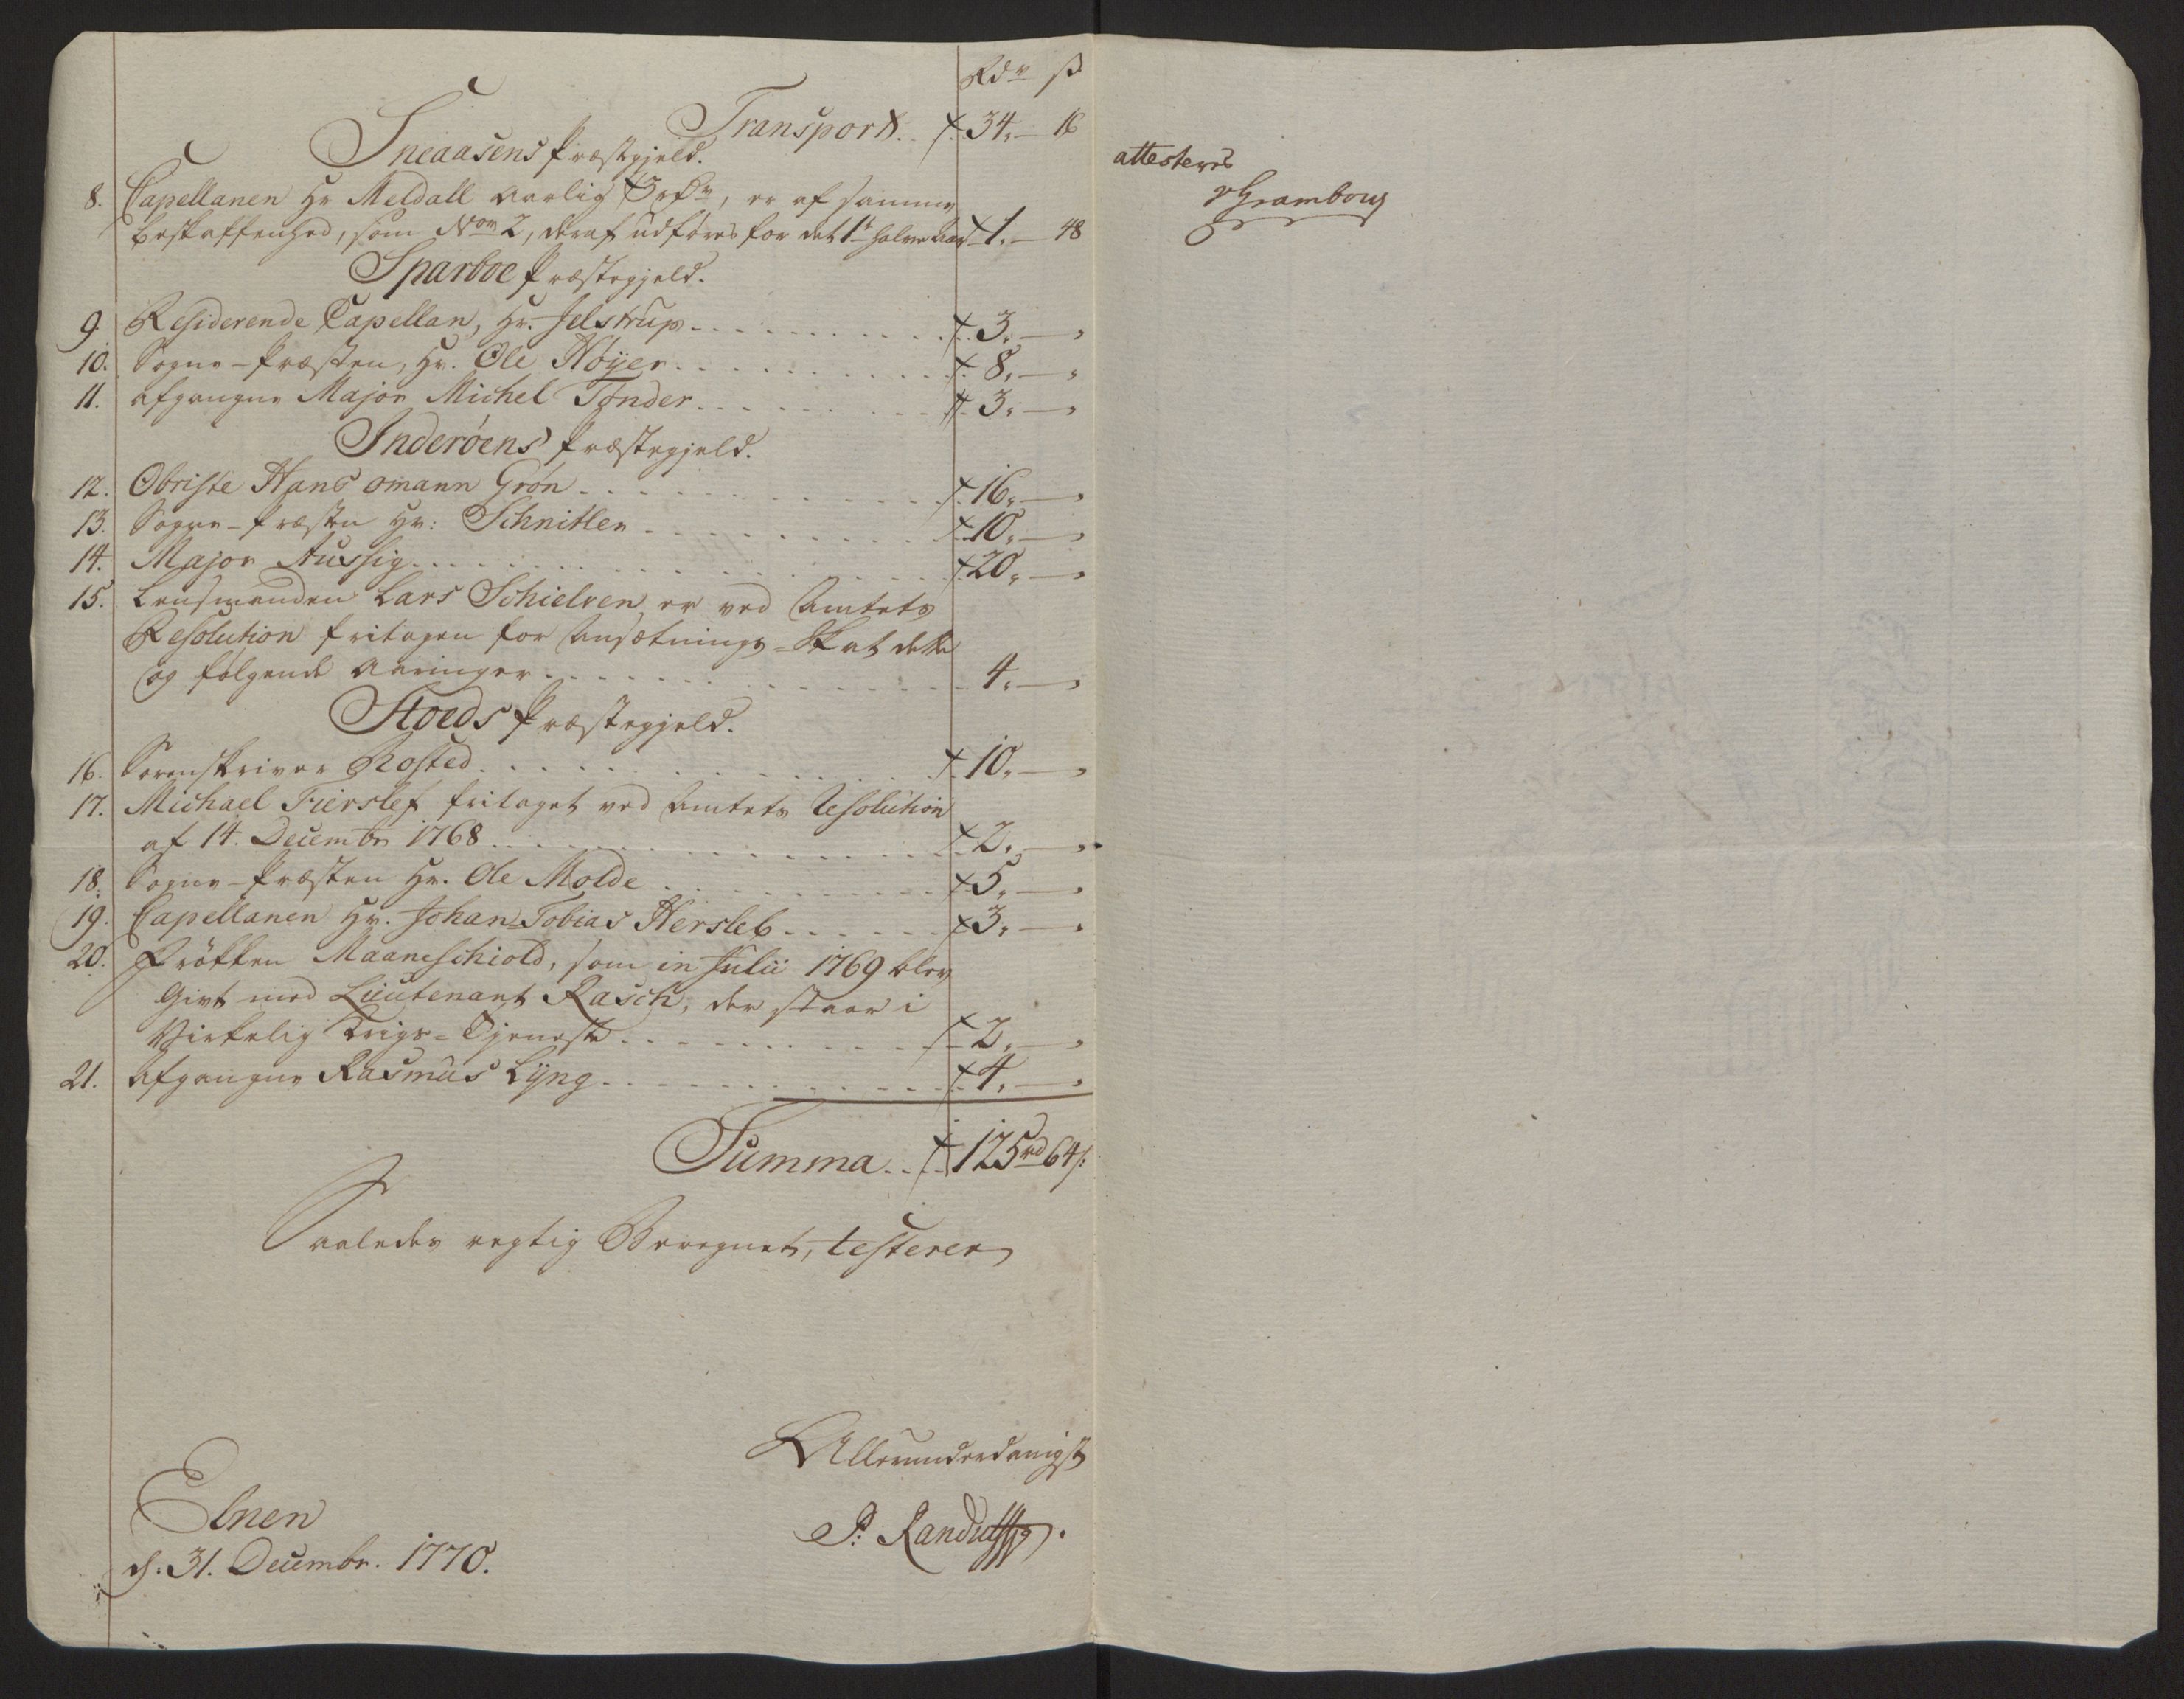 Rdr ß
Transport . . 34. — 16
Sneaasens Præstegjeld.
8. Capellanen Hr Meldall aarlig 3 rdr, er af samme
beskaffenhed, som No 2, deraf udføres for det 1te halve Aar 1. — 48
Sparboe Præstegjeld.
9. Residerende Capellan, Hr. Jelstrup . . . 3. — "
10. Sogne-Præsten, Hr. Ole Høyer . . . 8. — "
11. Afgangne Major Michel Tønder . . . 3. — "
Inderøens Præstegjeld.
12. Obriste Hans omann Grøn . . . 16. — "
13. Sogne-Præsten Hr: Schnitler . . . 10. — "
14. Major Aussig . . . 20. — "
15. Lensmanden Lars Schielven er ved Amtets
Resolution fritagen for Ansætnings-Skat dette
og følgende Aaringer . . . 4. — "
Stoeds Præstegjeld.
16. Sorenskriver Rosted . . . 10. — "
17. Michael Fierslef fritaget ved Amtets Resolution
af 14. Decembr 1768 . . . 2. — "
18. Sogne-Præsten Hr. Ole Molde . . . 5. — "
19. Capellanen Hr. Johan Tobias Hersleb . . . 3. — "
20. Frøken Maaneschiold, som in Julii 1769 blev
Givt med Lieutenant Rasch, der staar i
Virkelig Krigs-Tjeneste . . . 2. — "
21. Afgangne Rasmus Lyng . . . 4. — "
Summa . . 125 rd 64 ß
Saaledes regtig Beregnet, testerer
Allerunderdanigst
Elnen P: Randulff
d. 31. Decembr. 1770.
attesteres
v Grambow